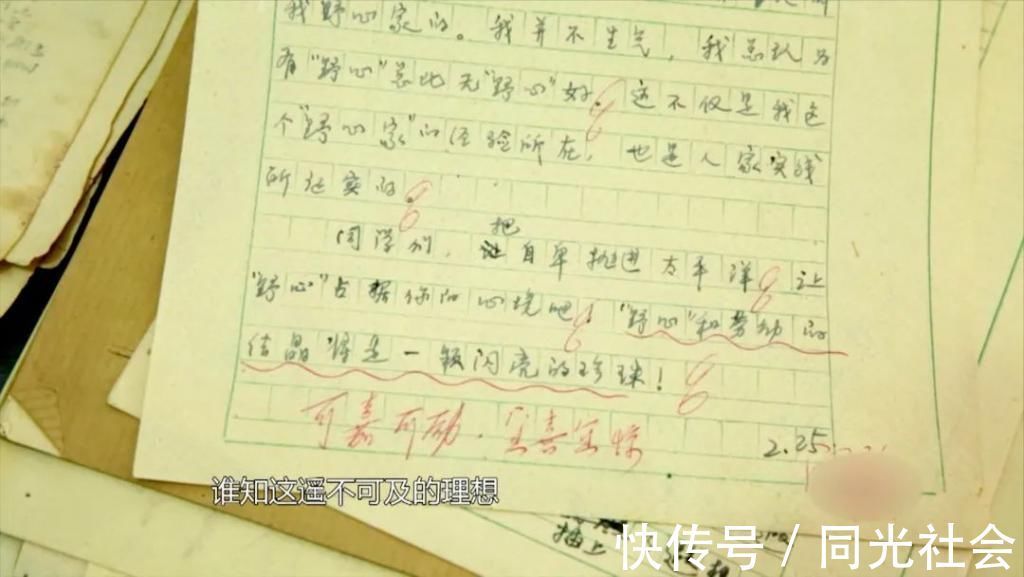 我野心家的。我并不生气，我总认为
有"野心"总比无"野心"好。这不仅是我这
个"野心家"的经验所在，也是人家实践
所证实的。
同学们，把自卑抛进太平洋，让
"野心"占据你的心境吧！"野心"和劳动的
结晶将是一颗闪亮的珍珠！
可嘉可励．宝嘉宝
2.25
谁知这遥不可及的理想
插上
快传号 / 同光社会